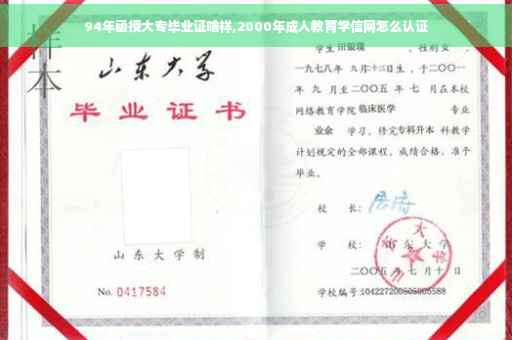 94年函授大专毕业证啥样,2000年成人教育学信网怎么认证
样本
山东大学
毕业证书
山东大学制
No. 0417584
学生 田银瑞 ,性别 女 ,
一九七八年 九月十三日生,于二〇〇一
年 九 月至二〇〇五 年 七 月在本校
网络教育学院 临床医学 专业
业余 学习,修完专科升本 科教学
计划规定的全部课程,成绩合格,准予
毕业。
校 长:
学 校: 山东大学
二〇〇五年七月十日
学校编号:104227200505005588